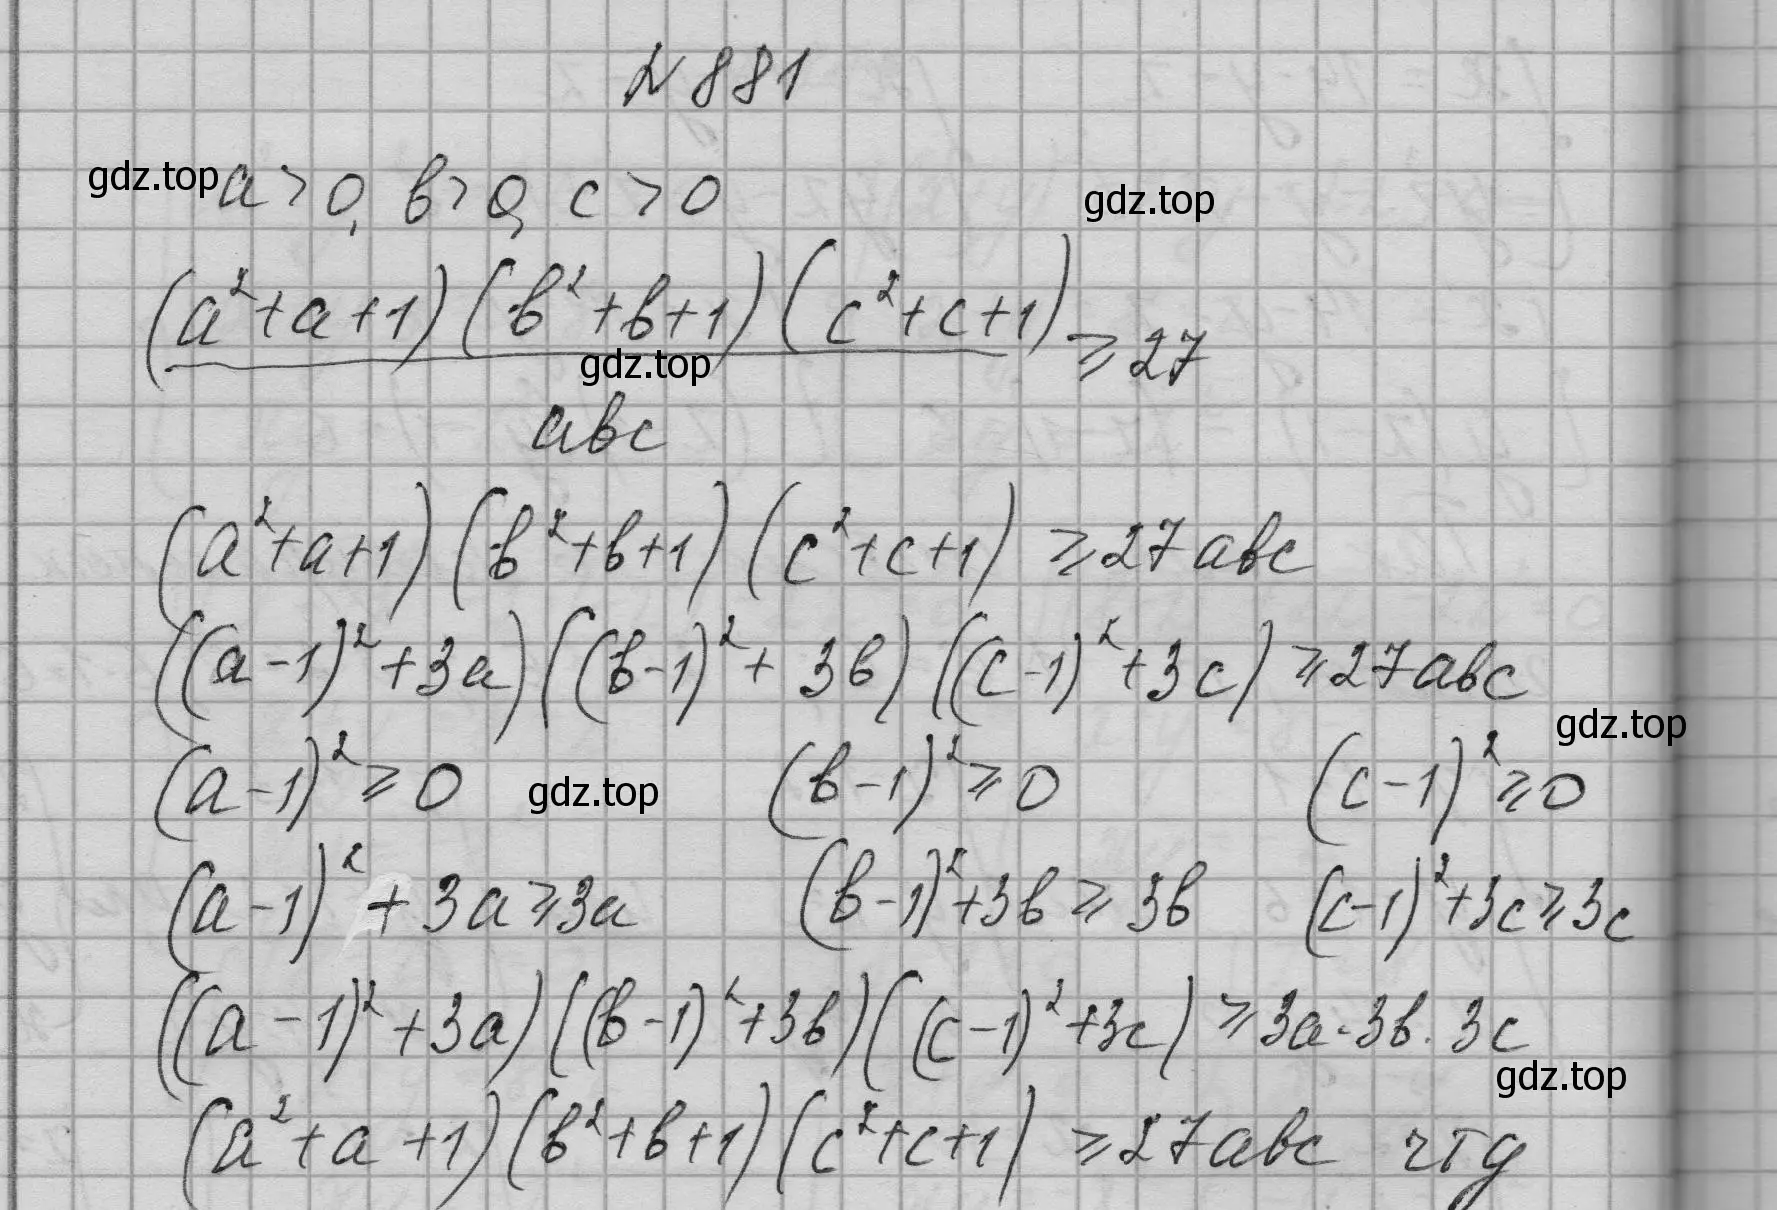 № 881
gdz.top a > 0, b > 0, c > 0 gdz.top
(a² + a + 1)(b² + b + 1)(c² + c + 1) ⩾ 27
gdz.top
abc
(a² + a + 1)(b² + b + 1)(c² + c + 1) ⩾ 27abc
((a - 1)² + 3a)((b - 1)² + 3b)((c - 1)² + 3c) ⩾ 27abc
gdz.top
(a - 1)² ⩾ 0 gdz.top (b - 1)² ⩾ 0 (c - 1)² ⩾ 0
(a - 1)² + 3a ⩾ 3a (b - 1)² + 3b ⩾ 3b (c - 1)² + 3c ⩾ 3c
((a - 1)² + 3a)((b - 1)² + 3b)((c - 1)² + 3c) ⩾ 3a · 3b · 3c
gdz.top
(a² + a + 1)(b² + b + 1)(c² + c + 1) ⩾ 27abc чтд